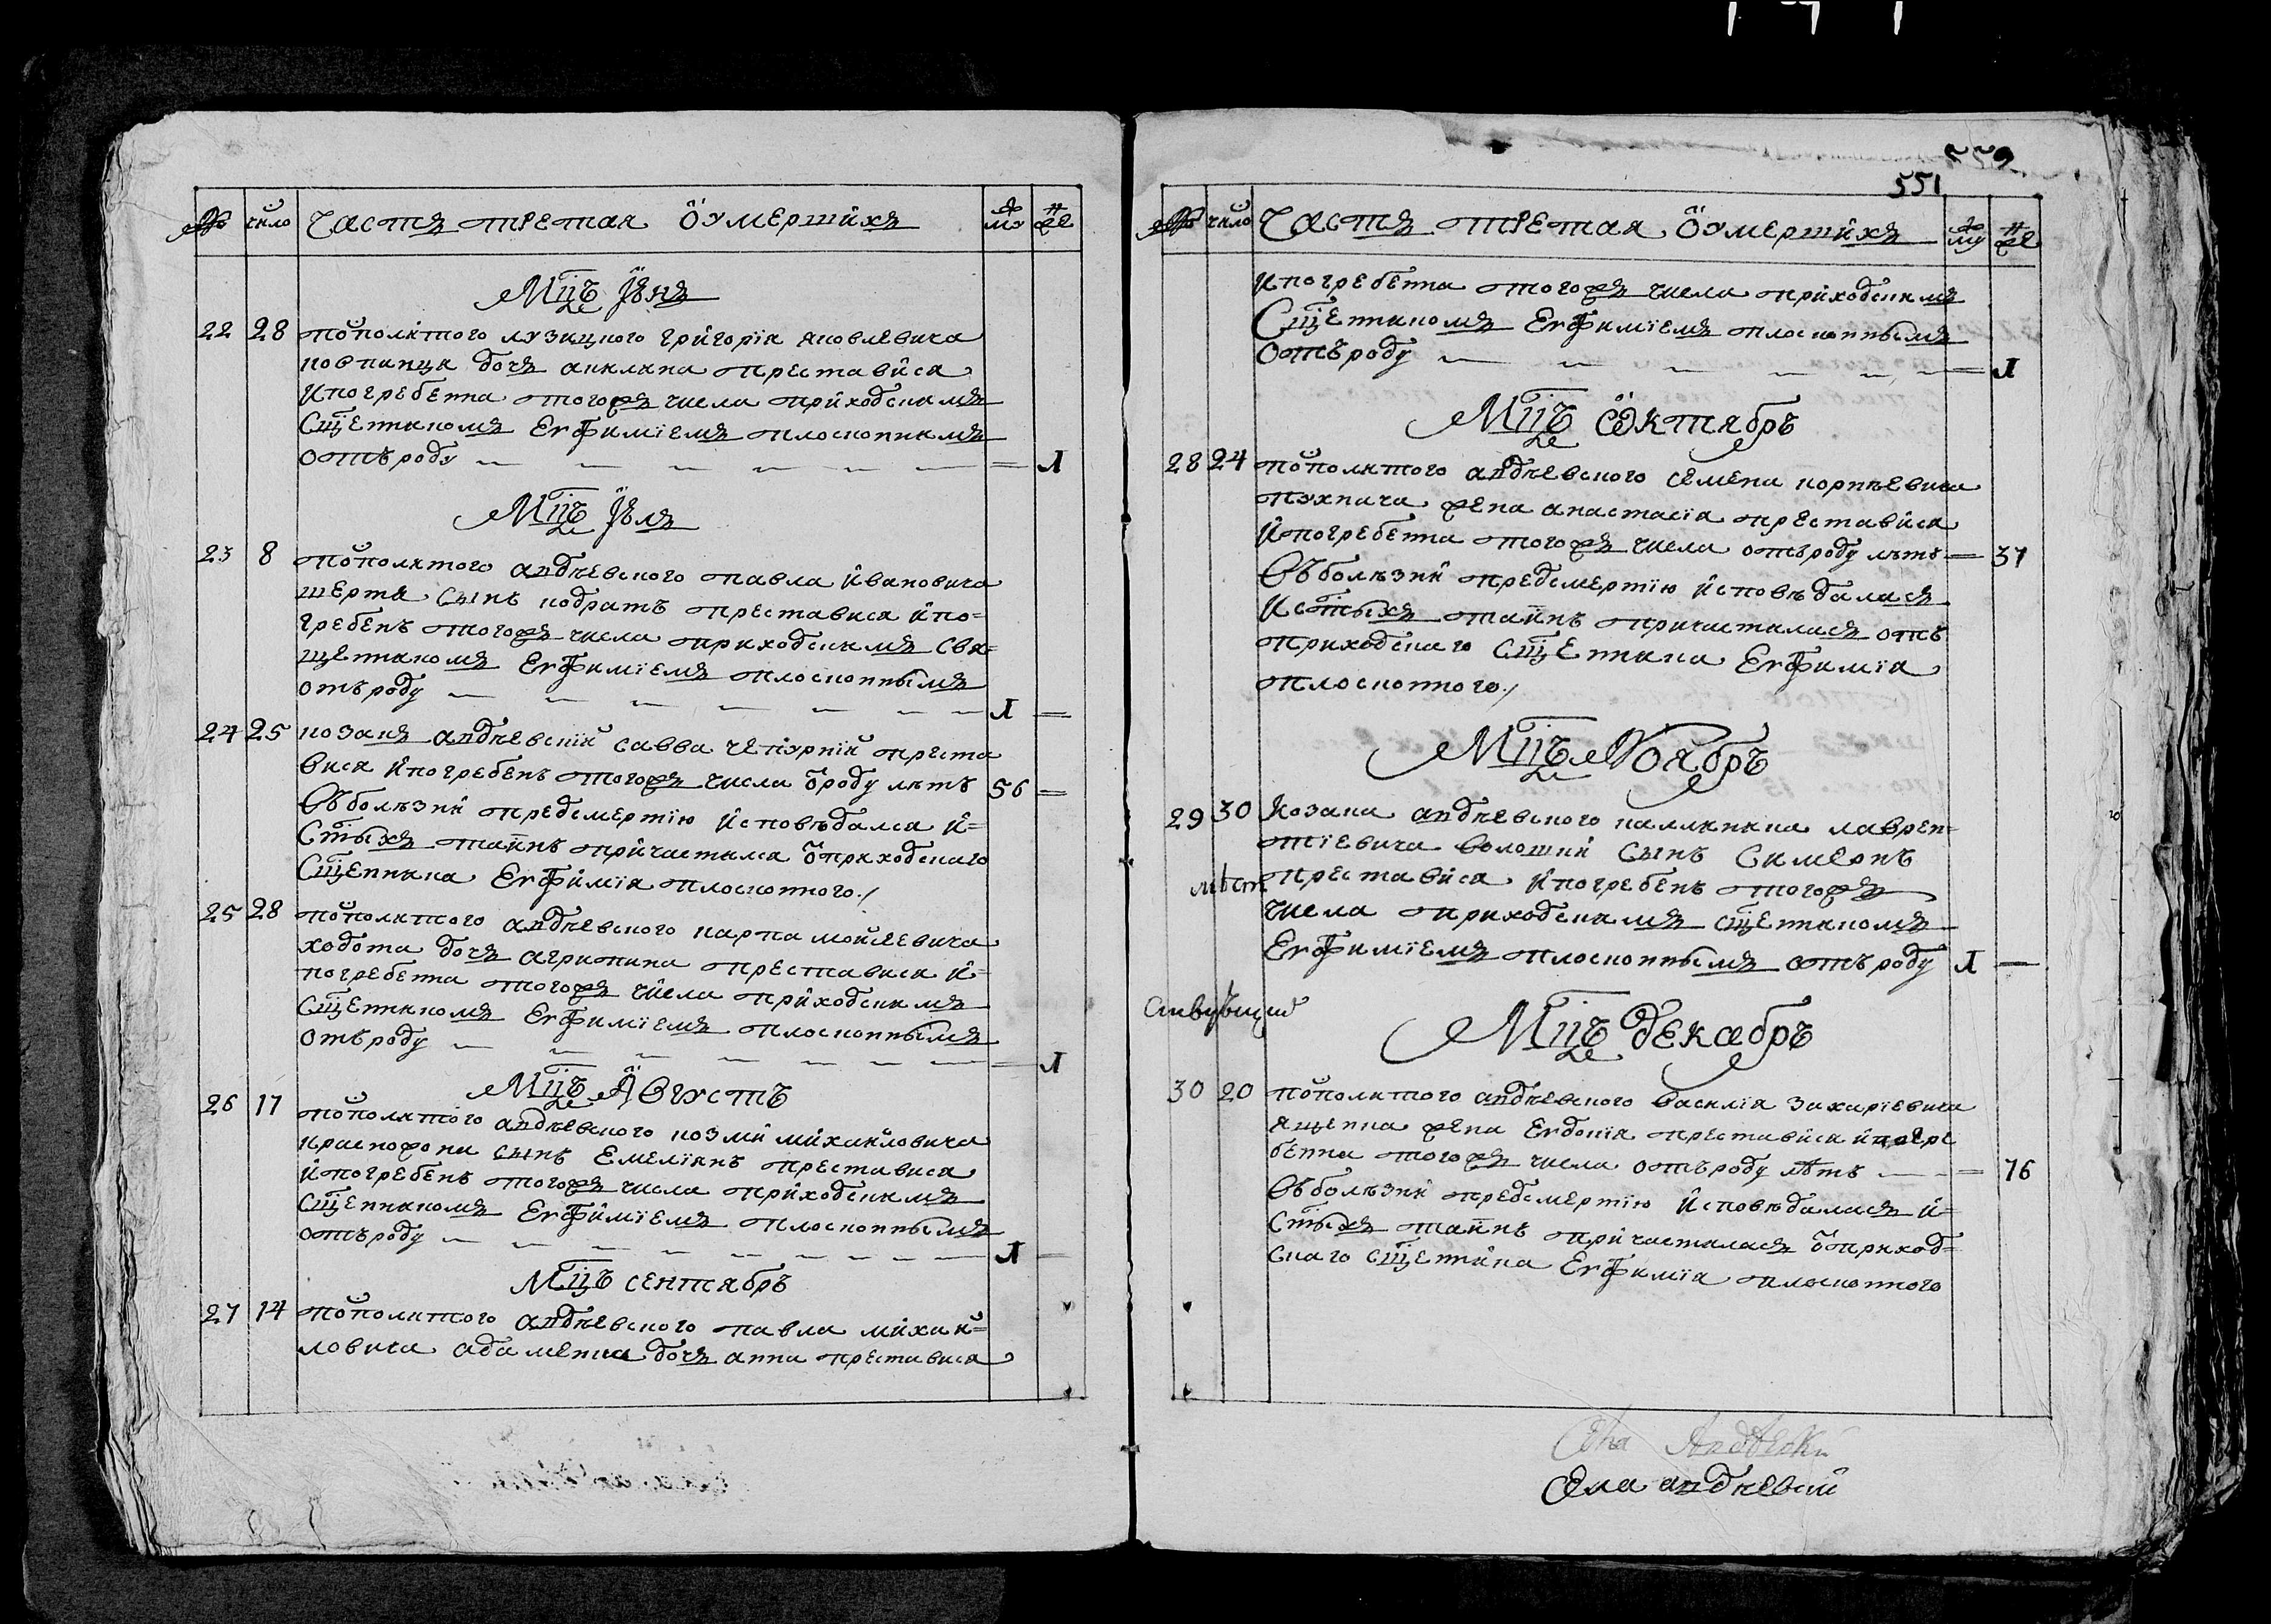 № число Часть третая о умершихъ му же
Мцъ Іюнь
22 28 посполитого лузицкого григорія яковлевича
ковпанца дочь акилина преставися
и погребенна тогожъ числа приходскимъ
Сщенникомъ Евфиміемъ плосконнимъ
отъ роду — — — — — — = Л
Мцъ Іюль
23 8 посполитого андреевского павла ивановича
шерта сынъ кодратъ преставися и по=
гребенъ тогожъ числа приходскимъ свя=
щенникомъ Евфиміемъ плосконнымъ
отъ роду — — — — — — — Л =
24 25 козакъ андреевскій савва чепурній преста
вися и погребенъ тогожъ числа о роду летъ 56 =
Въ болезни предсмертію исповедался и=
Стыхъ таинъ причастился о приходскаго
Сщенника Евфимія плосконного./
25 28 посполитого андреевского карпа мойсеевича
ходота дочь агрипина преставися и=
погребенна тогожъ числа приходскимъ
Сщенникомъ Евфиміемъ плосконнымъ
отъ роду — — — — — — — = Л
Мцъ Августъ
26 17 посполитого андреевского козми михайловича
краснофона сынъ Емеліянъ преставися
и погребенъ тогожъ числа приходскимъ
Сщенникомъ Евфиміемъ плосконнымъ
отъ роду — — — — — — — — — Л —
Мцъ сентябръ
27 14 посполитого андреевского павла михай=
ловича адаменка дочь анна преставися
559
551
№ число Часть третая о умершихъ му же
и погребенна тогожъ числа приходскимъ
Сщенникомъ Евфиміемъ плосконнымъ
отъ роду — — — — — — = Л
Мцъ Октябръ
28 24 посполитого андреевского семена корнеевича
пухкача жена анастасія преставися
и погребенна тогожъ числа отъ роду летъ — 37
Въ болезни предсмертію исповедалась
и стыхъ таинъ причастилась отъ
приходскаго Сщенника Евфимія
плосконного./
Мцъ Ноябръ
29 30 Козака андреевского калиника лаврен=
тіевича волошки сынъ Симеонъ
преставися и погребенъ тогожъ
числа приходскимъ сщенникомъ
Евфиміемъ плосконнымъ отъ роду Л —
Мцъ декабръ
30 20 посполитого андреевского василія захаріевича
яценка жена Евдокія преставися и погре
бенна тогожъ числа отъ роду летъ — — = 76
Въ болезни предсмертію исповедалась и=
стыхъ таинъ причасталась о приход=
скаго сщенника Евфимія плосконного
Села андреевки